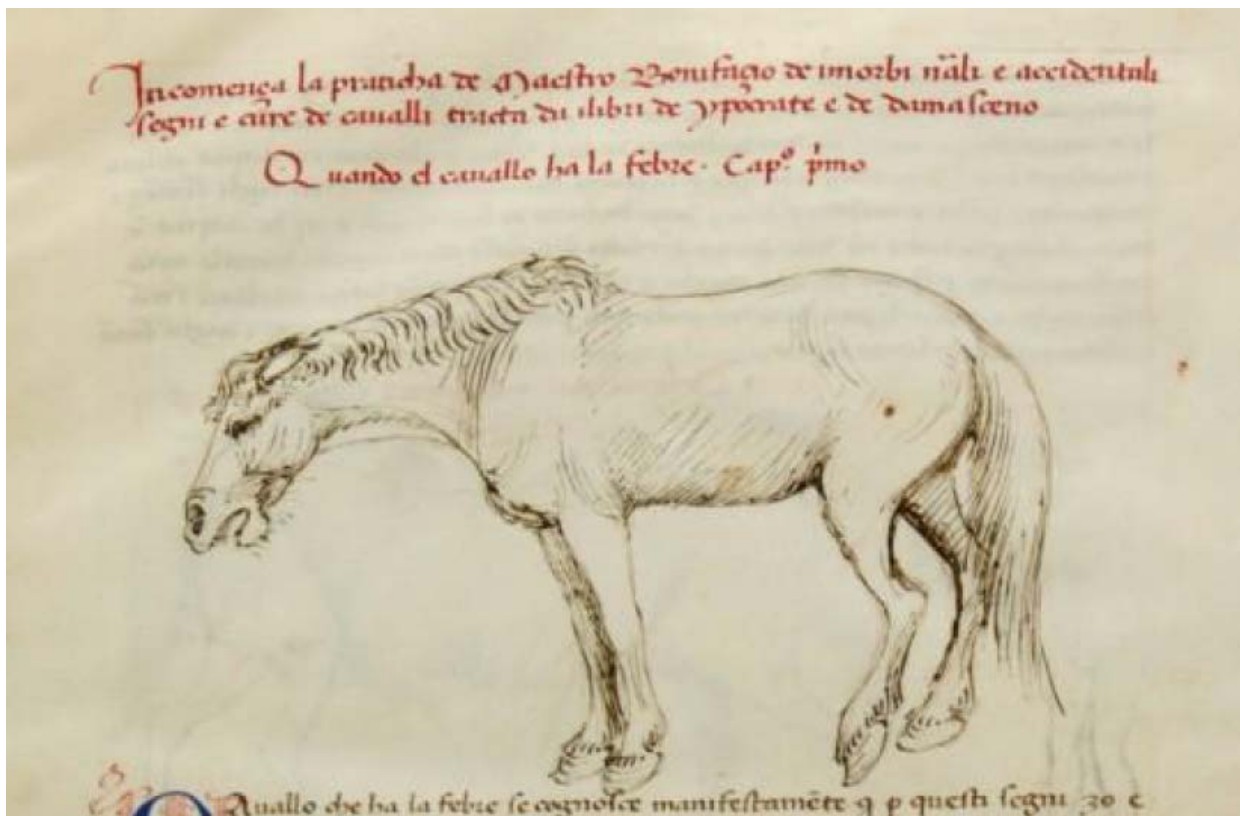 Incomença la praticha de Maestro Bonifacio de imorbi nãli e accidentali
segni e cure de cavalli tracta da ilibri de ypocrate e de damasceno
Quando el cavallo ha la febre. Capº. pṁo
Quallo che ha la febre se cognosce manifestamẽte q p questi segni 30 e